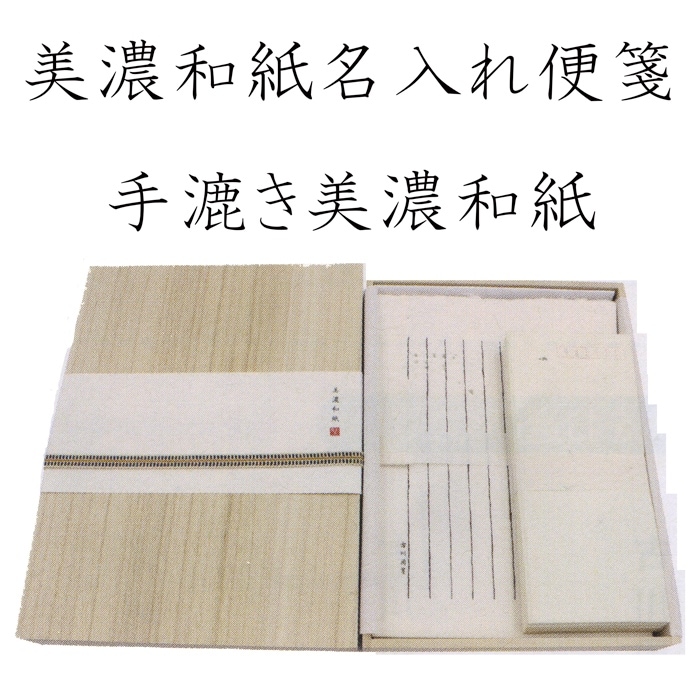 美濃和紙名入れ便箋
手漉き美濃和紙
美濃和紙